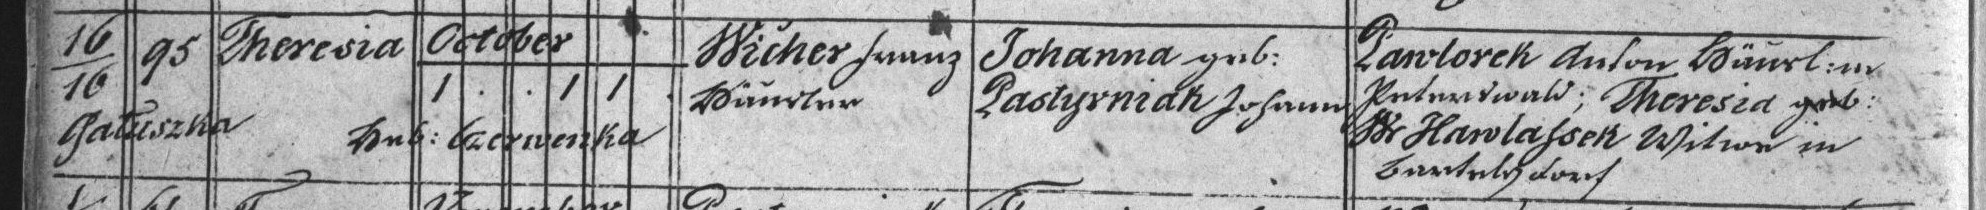 16 95 Theresia October Wicher Franz Johanna geb: Pawlorek Anton Häusl: in
16 1 . . 1 1 . Häusler Pastyrniak Johann Peterswald; Theresia geb:
Gałuszka Heb: Czerwenka Hawlassek Witwe in
Bartelsdorf